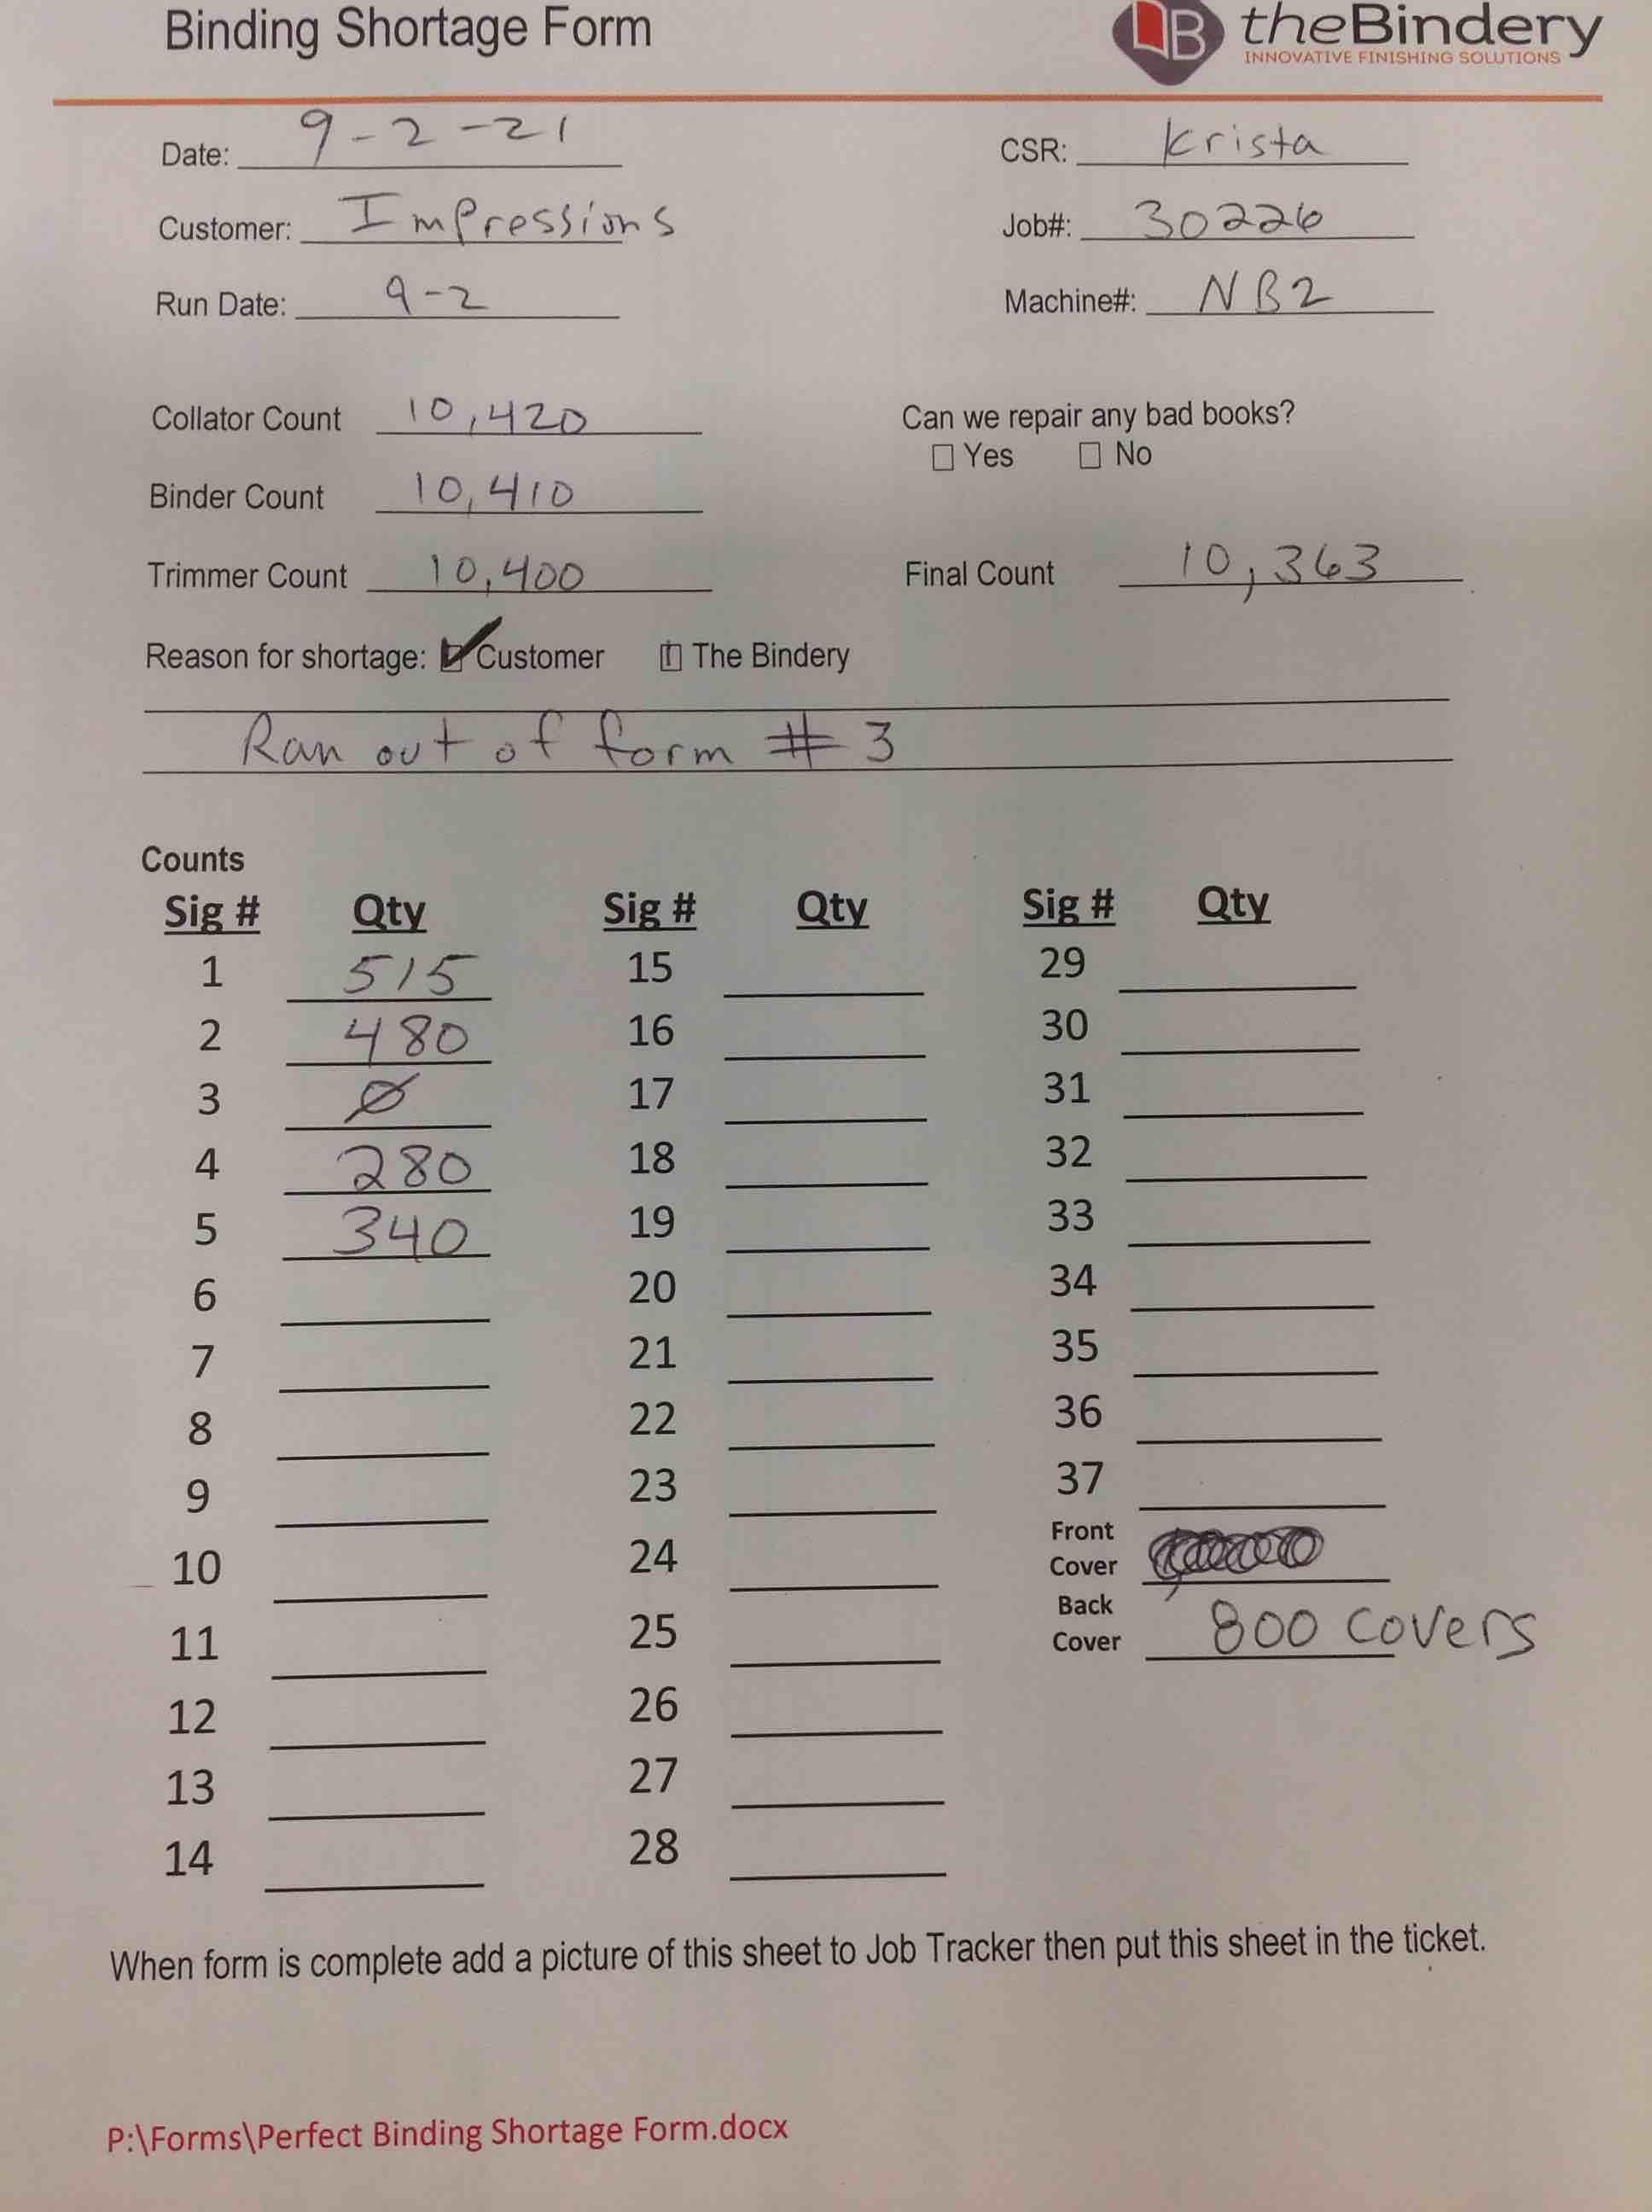 Binding Shortage Form
theBindery
INNOVATIVE FINISHING SOLUTIONS
Date: 9-2-21 CSR: Krista
Customer: Impressions Job#: 30226
Run Date: 9-2 Machine#: NB2
Collator Count 10,420 Can we repair any bad books?
☐ Yes ☐ No
Binder Count 10,410
Trimmer Count 10,400 Final Count 10,363
Reason for shortage: ☑ Customer ☐ The Bindery
Ran out of form # 3
Counts
Sig # Qty Sig # Qty Sig # Qty
1 515 15 29
2 480 16 30
3 Ø 17 31
4 280 18 32
5 340 19 33
6 20 34
7 21 35
8 22 36
9 23 37
10 24 Front Cover
11 25 Back Cover 800 covers
12 26
13 27
14 28
When form is complete add a picture of this sheet to Job Tracker then put this sheet in the ticket.
P:\Forms\Perfect Binding Shortage Form.docx